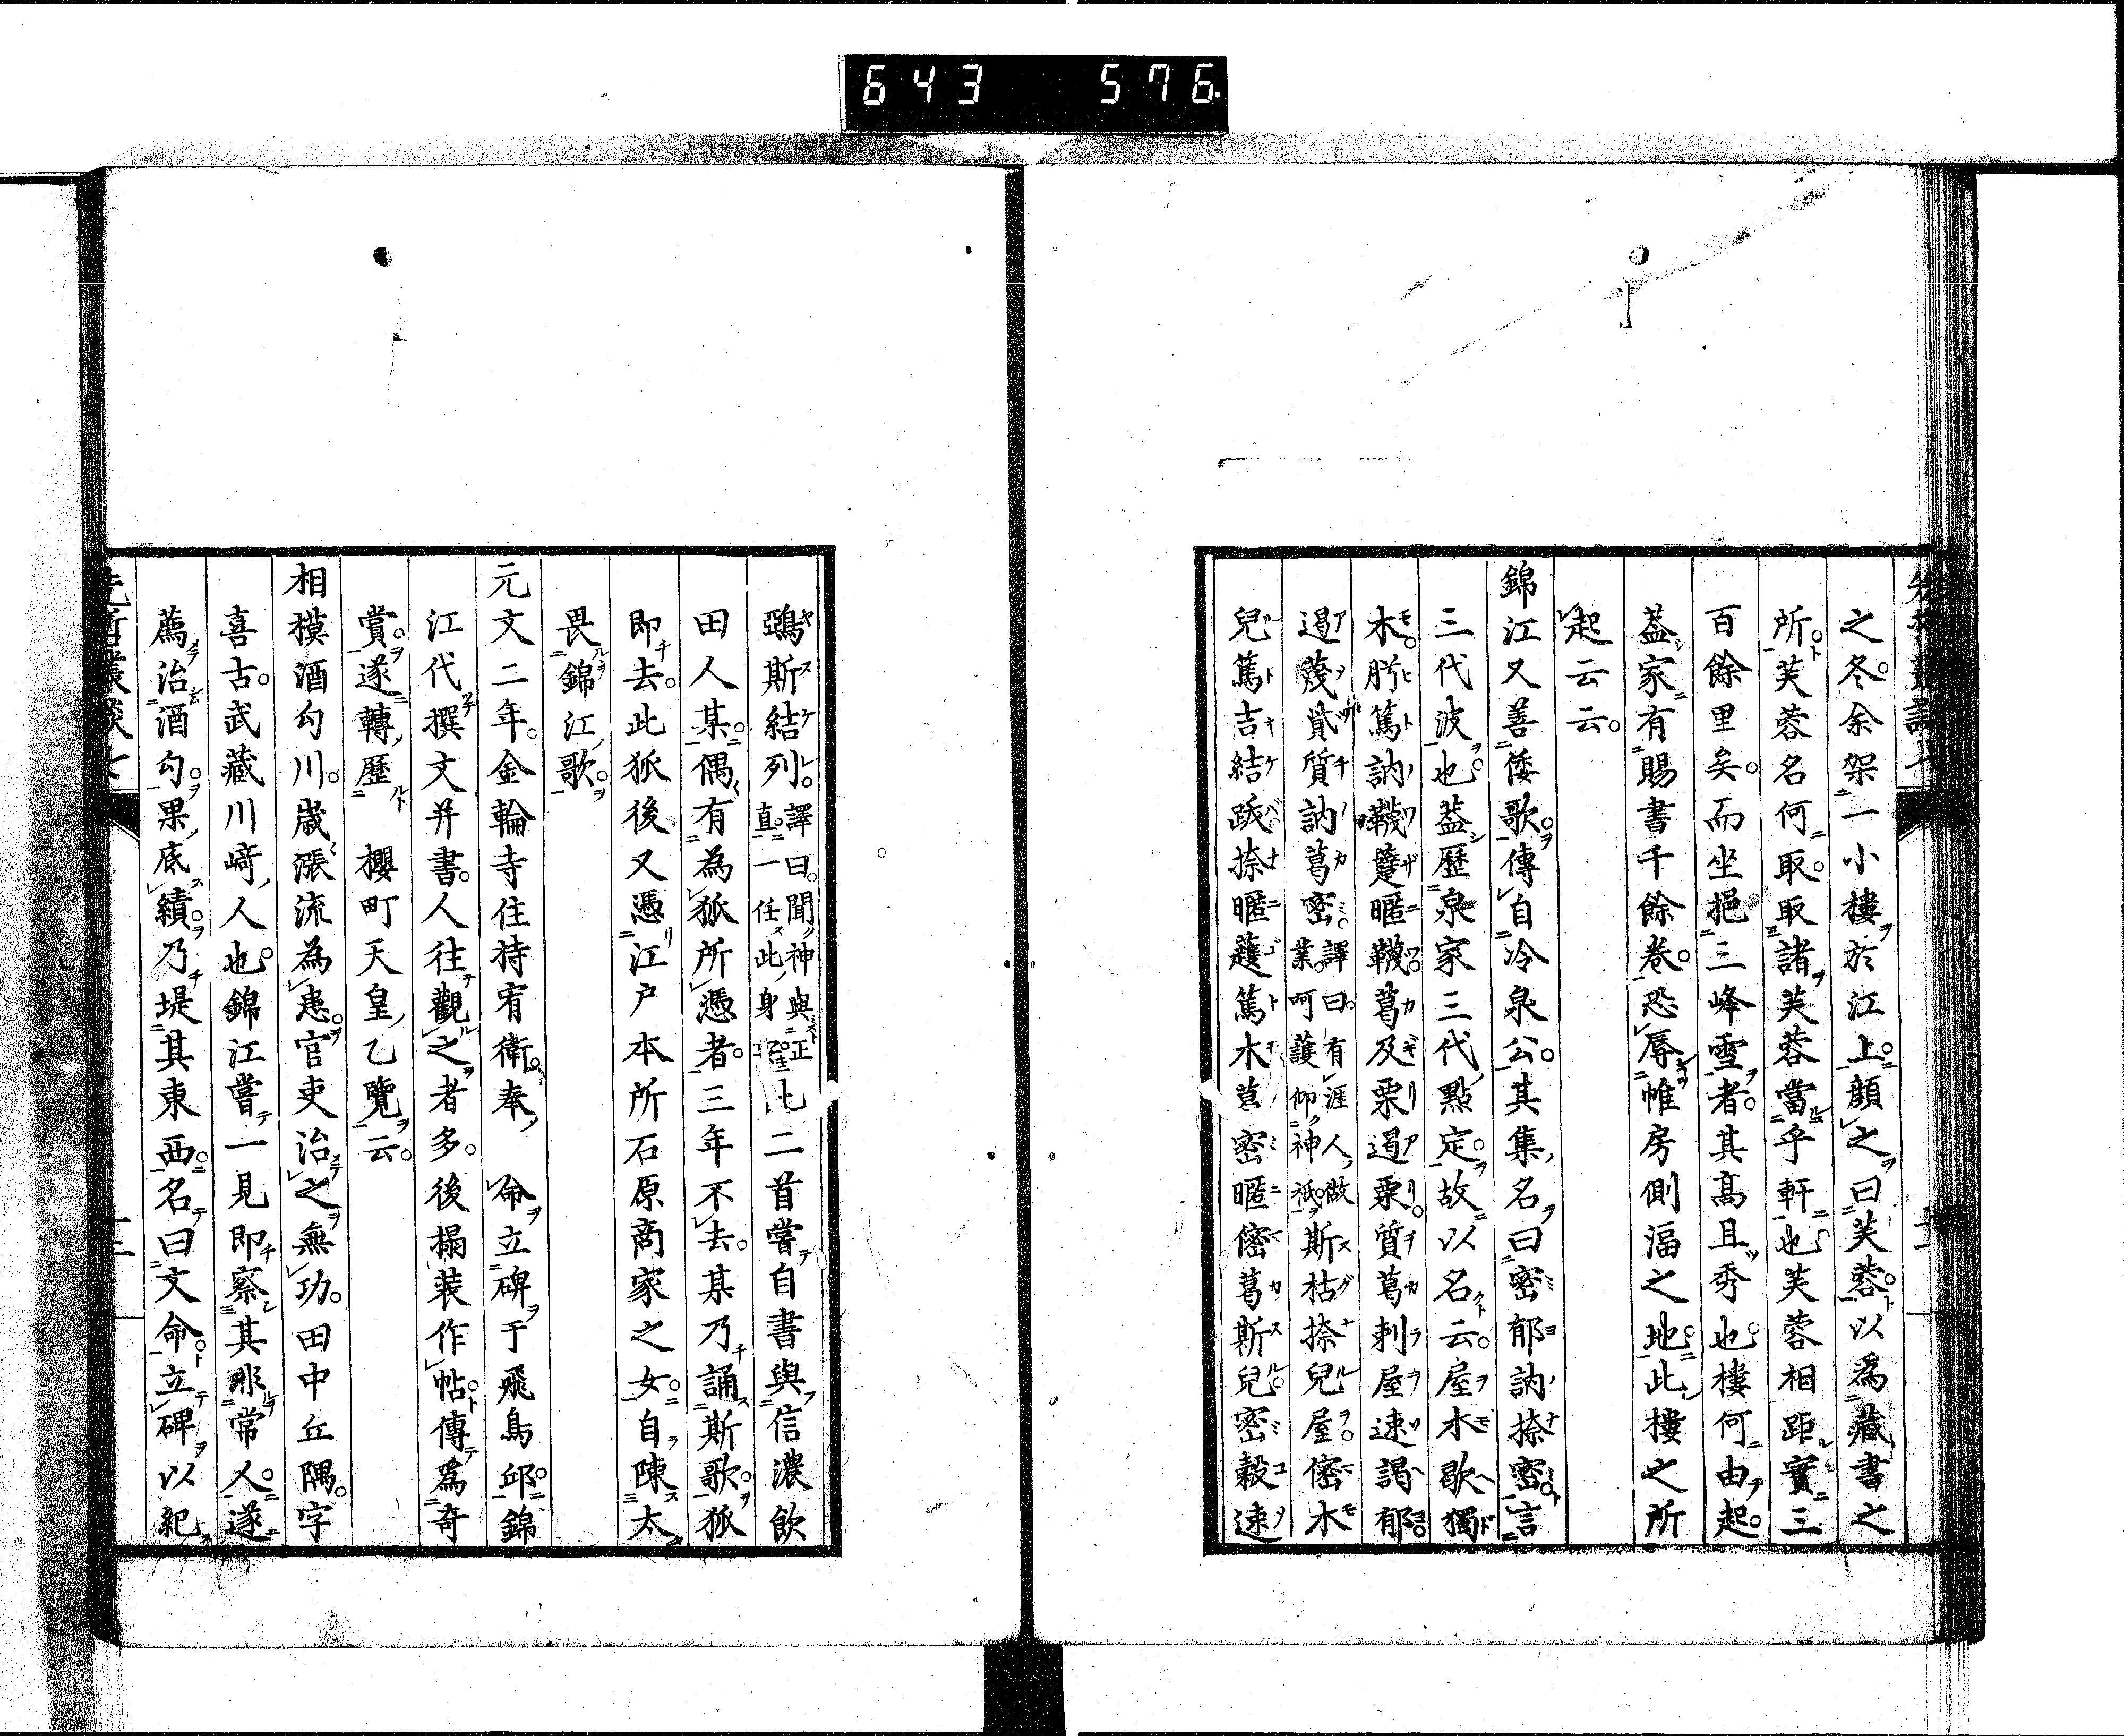 643 576
之冬余架一小樓於江上顔之曰芙蓉以爲藏書之
所芙蓉名何取取諸芙蓉當乎軒也芙蓉相距實三
百餘里矣而坐挹三峰雪者其高且秀也樓何由起
蓋家有賜書千餘卷恐辱帷房側湢之地此樓之所
起云云
錦江又善倭歌傳自冷泉公其集名曰密郁訥捺密言
三代波也蓋歷泉家三代點定故以名云屋木歇獨
木肹篤訥韈躠暱韈葛及栗遏栗質葛刺屋速謁郁
遏蔑貲質訥葛密譯曰有涯人做業呵護仰神祗斯枯捺兒屋密木
兒篤吉結跋捺暱護篤木 密暱密葛斯兒密穀速
鵶斯結列譯曰聞神與正直一任此身 二首嘗自書與信濃飲
田人某偶有為狐所憑者三年不去某乃誦斯歌狐
即去此狐後又憑江戸本所石原商家之女自陳太
畏錦江歌
元文二年金輪寺住持宥衛奉 命立碑于飛鳥邱錦
江代撰文并書人往觀之者多後搨装作帖傳爲奇
賞遂轉歷 櫻町天皇乙覽云
相模酒勾川歲漲流為患官吏治之無功田中丘隅字
喜古武藏川﨑人也錦江嘗一見即察其非常人遂
薦治酒勾果底績乃堤其東西名曰文命立碑以紀
先哲叢談七